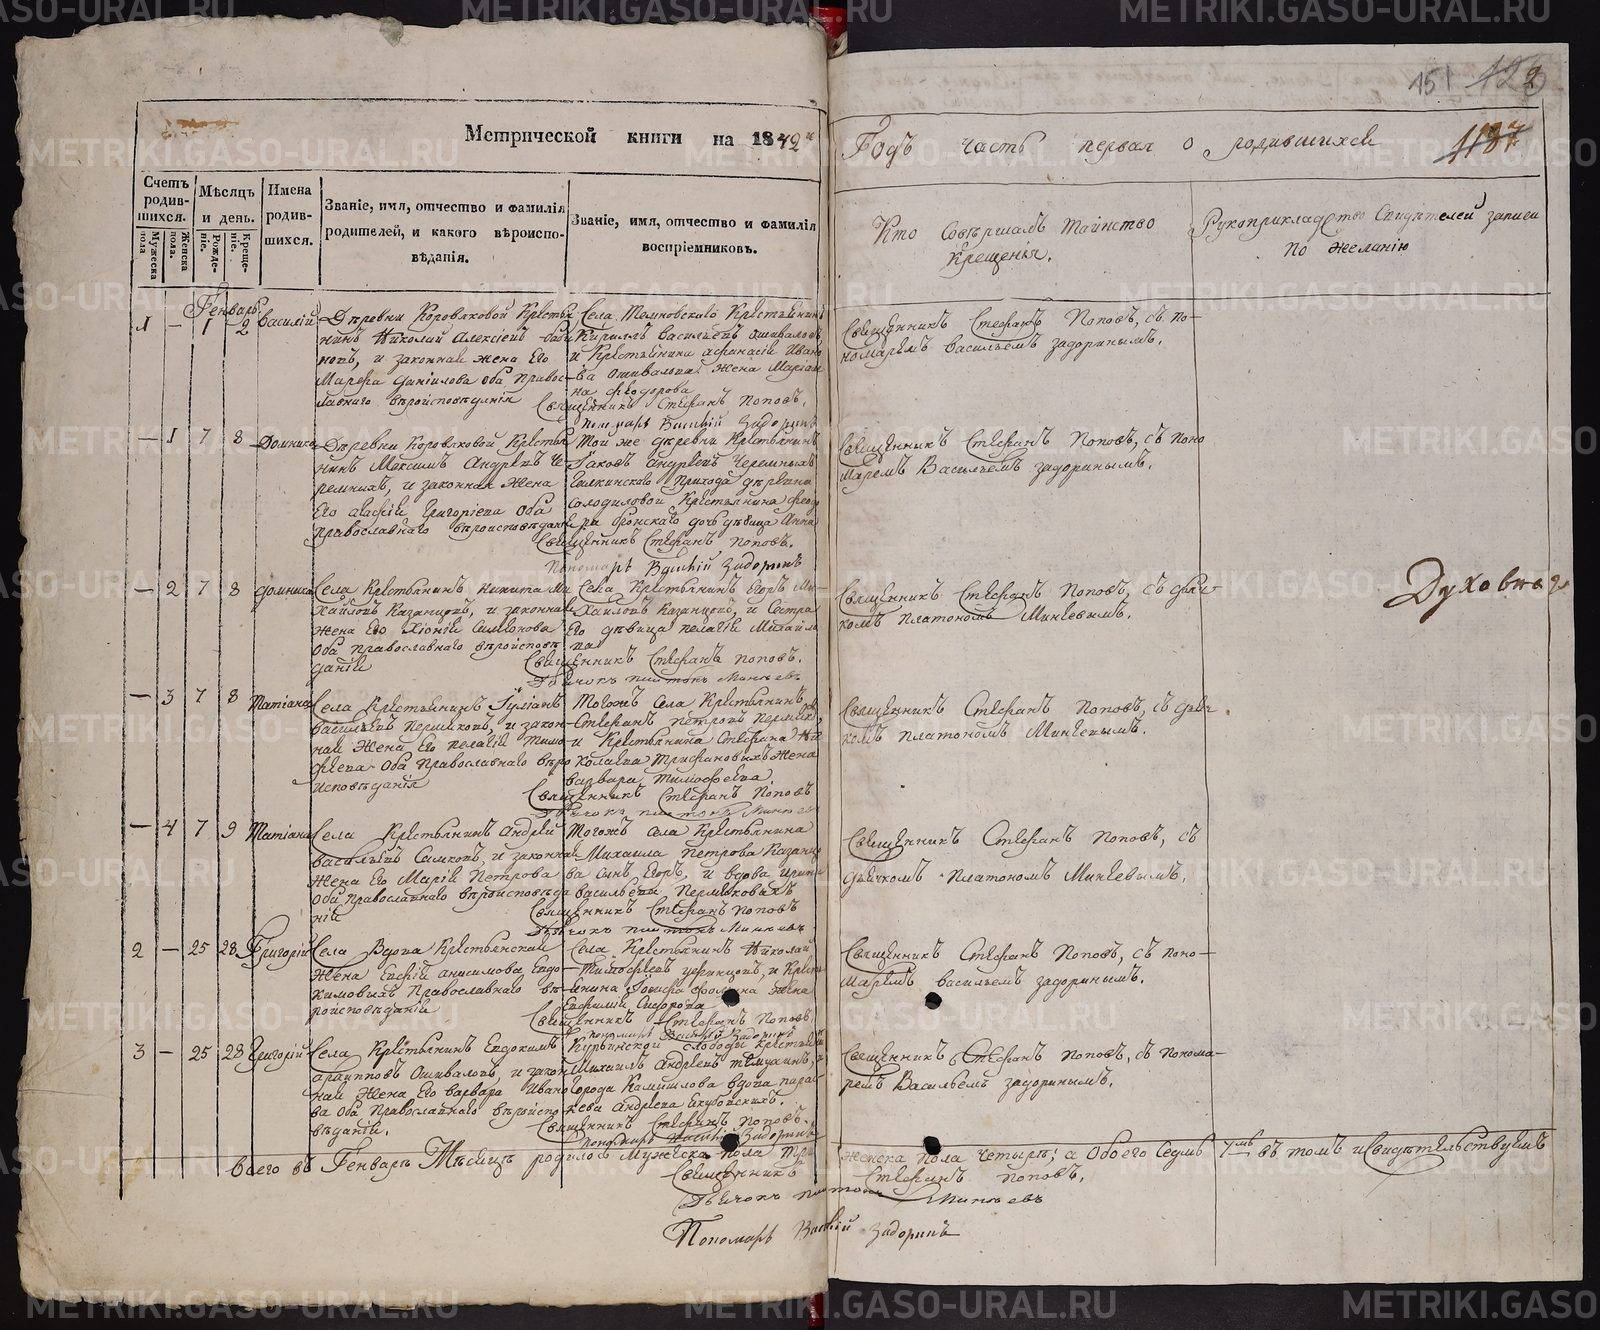 151
Метрической книги на 1842й
Годъ часть первая о родившихся
1187
Счетъ родившихся.
Мужеска пола
Женска пола.
Мѣсяцъ и день.
Рожденіе.
Крещеніе.
Имена родившихся.
Званіе, имя, отчество и фамилія родителей, и какого вѣроисповѣданія.
Званіе, имя, отчество и фамилія воспріемниковъ.
Кто совершалъ таинство
крещенія.
Рукоприкладство свидѣтелей записи
по желанію
Генварь
1 — 1 2 Василій
Деревни Коровяковой Крестья
нинъ Николай Алексіевъ
и законная жена Его
Марѳа Даніилова оба Право
славнаго вѣроисповѣданія
Села Темновскаго Крестьянинъ
Кириллъ Васильевъ Ошиваловъ
и Крестьянина Афанасія Ивано
ва Ошивалова жена Маріам
на Феодорова
Священникъ Стефанъ Поповъ.
Пономарь Василій Задоринъ
Священникъ Стефанъ Поповъ, съ по
номаремъ Васильемъ Задоринымъ.
— 1 7 8 Домника
Деревни Коровяковой Крестья
нинъ Максимъ Андреевъ Че
ремныхъ, и законная жена
Его Григоріева оба
Православнаго вѣроисповѣдан
Той же деревни Крестьянинъ
Іаковъ Андреевъ Черемныхъ
Галкинскаго прихода деревни
Солодиловой Крестьянина Феод
ра Бронскаго дочь девица Анна
Священникъ Стефанъ Поповъ.
Пономарь Василій Задоринъ
Священникъ Стефанъ Поповъ, съ поно
маремъ Васильемъ Задоринымъ.
— 2 7 8 Домника
Села Крестьянинъ Никита Ми
хайловъ Казанцовъ, и законная
жена Его Хіонія Симеонова
Оба православнаго вѣроисповѣ
данія
Села Крестьянинъ Егоръ Ми
хайловъ Казанцовъ, и Сестра
Его девица Пелагія Михайло
ва
Священникъ Стефанъ Поповъ.
Дьячокъ Платонъ Минѣевъ
Священникъ Стефанъ Поповъ, съ дьяч
комъ Платономъ Минѣевымъ.
Духовнаго
— 3 7 8 Татіана
Села Крестьянинъ Іуліанъ
Васильевъ Пермяковъ, и закон
ная жена Его Пелагія Тимо
феева Оба Православнаго вѣро
исповѣданія
Тогожъ Села Крестьянинъ
Стефанъ Петровъ Пермяковъ,
и Крестьянина Стефана Ни
колаева Трифановыхъ жена
Варвара Тимофеева
Священникъ Стефанъ Поповъ
Дьячокъ Платонъ Минѣевъ
Священникъ Стефанъ Поповъ, съ дьяч
комъ Платономъ Минѣевымъ.
— 4 7 9 Татіана
Села Крестьянинъ Андрей
Васильевъ Самковъ, и законная
жена Его Марія Петрова
Оба Православнаго вѣроисповѣда
нія
Тогожъ села Крестьянина
Михаила Петрова Казанцо
ва сынъ Егоръ, и вдова Ирина
Васильева Пермяковыхъ
Священникъ Стефанъ Поповъ
Дьячокъ Платонъ Минѣевъ
Священникъ Стефанъ Поповъ, съ
дьячкомъ Платономъ Минѣевымъ.
2 — 25 28 Григорій
Села Вдова Крестьянская
жена Евфія Анисимова Евдо
кимовыхъ Православнаго вѣ
роисповѣданія
Села Крестьянинъ Николай
Тимофеевъ и Крест
янина Іосифа Фролина жена
Евфимія Сидорова
Священникъ Стефанъ Поповъ
пономарь Василій Задоринъ
Священникъ Стефанъ Поповъ, съ поно
маремъ Васильемъ Задоринымъ.
3 — 25 28 Григорій
Села Крестьянинъ Евдокимъ
Архиповъ Ошиваловъ, и закон
ная жена Его Варвара Ивано
ва Оба Православнаго вѣроиспо
вѣданія.
Курьинской слободы Крестьянин
Михаилъ Андреевъ и
города Камышлова вдова Парас
кева Андреева
Священникъ Стефанъ Поповъ.
пономарь Василій Задоринъ
Священникъ Стефанъ Поповъ, съ понома
ремъ Васильемъ Задоринымъ.
Всего въ Генварѣ Мѣсяцѣ родилось Мужеска пола три
женска пола четыре; а Обоего Семь 7мь въ томъ и Свидѣтельствуемъ
Священникъ Стефанъ Поповъ.
Дьячокъ Платонъ Минѣевъ
Пономарь Василій Задоринъ
METRIKI.GASO-URAL.RU